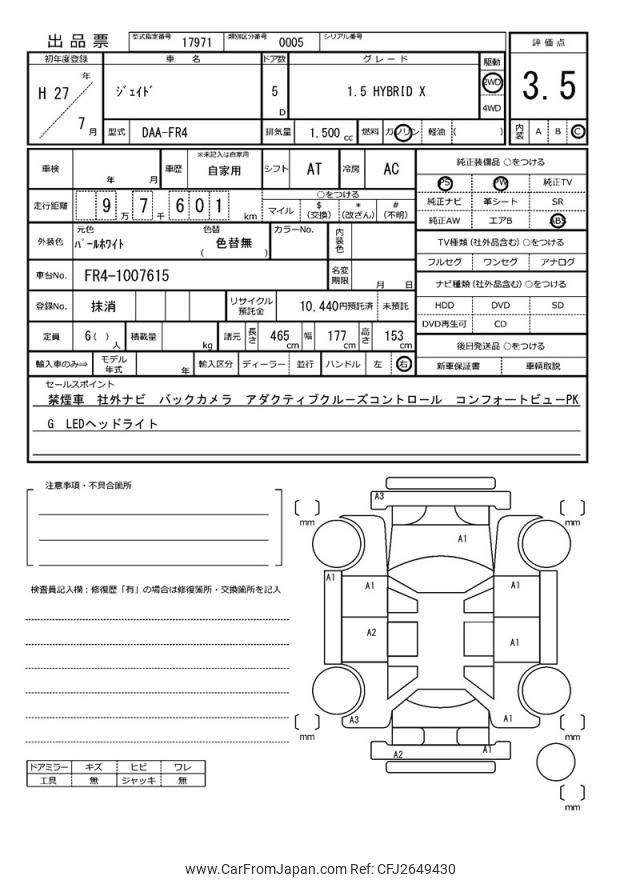 出品票 型式指定番号 17971 類別区分番号 0005 シリアル番号
評価点
3.5
内装 A B C
初年度登録 車名 ドア数 グレード 駆動
H 27 年 7 月
ジェイド 5 D 1.5 HYBRID X 2WD
4WD
型式 DAA-FR4 排気量 1.500 cc 燃料 ガソリン 軽油 ( )
車検 年 月 車歴 ※未記入は自家用 自家用 シフト AT 冷房 AC
走行距離 9万7千601 km
○をつける
マイル $(交換) *(改ざん) #(不明)
外装色 元色 パールホワイト 色替 ( 色替無 ) カラーNo. 内装色
車台No. FR4-1007615 名変期限 月 日
登録No. 抹消 リサイクル預託金 10,440円預託済 未預託
定員 6( ) 人 積載量 kg 諸元 長さ 465 cm 幅 177 cm 高さ 153 cm
輸入車のみ⇒ モデル年式 年 輸入区分 ディーラー 並行 ハンドル 左 右
純正装備品 ○をつける
PS PW 純正TV
純正ナビ 革シート SR
純正AW エアB ABS
TV種類 (社外品含む) ○をつける
フルセグ ワンセグ アナログ
ナビ種類 (社外品含む) ○をつける
HDD DVD SD
DVD再生可 CD
後日発送品 ○をつける
新車保証書 車輌取説
セールスポイント
禁煙車 社外ナビ バックカメラ アダクティブクルーズコントロール コンフォートビューPK
G LEDヘッドライト
注意事項・不具合箇所
検査員記入欄：修復歴「有」の場合は修復箇所・交換箇所を記入
ドアミラー キズ ヒビ ワレ
工具 無 ジャッキ 無
A3
mm mm
A1
A1 A1 A1
A2 A1
A3 A1
mm mm
A2 A1
mm
www.CarFromJapan.com Ref: CFJ2649430